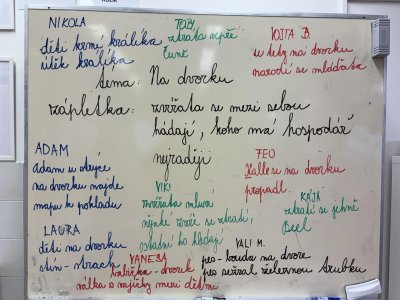 NIKOLA
děti krmí králíka
útěk králíka
TOBY
ztráta
Čunt
VOJTA B.
u tety na dvorku
narodí se mláďata
téma: Na dvorku
zápletka: zvířata se mezi sebou
hádají, koho má hospodář
nejraději
ADAM
adam u strýce
na dvorku najde
mapu k pokladu
FEO
Kalle se na dvorku
propadl.
VIKI
zvířata mluví
nějaké zvíře se ztratí,
ostatní ho hledají
KAJA
ztratí se jehně
Beel
LAURA
děti na dvorku
stín - strach
VANESA
babička - dvorek
válka o vajíčky mezi dětmi
VALI M.
pes - bouda na dvoře
pes sežral železnou trubku